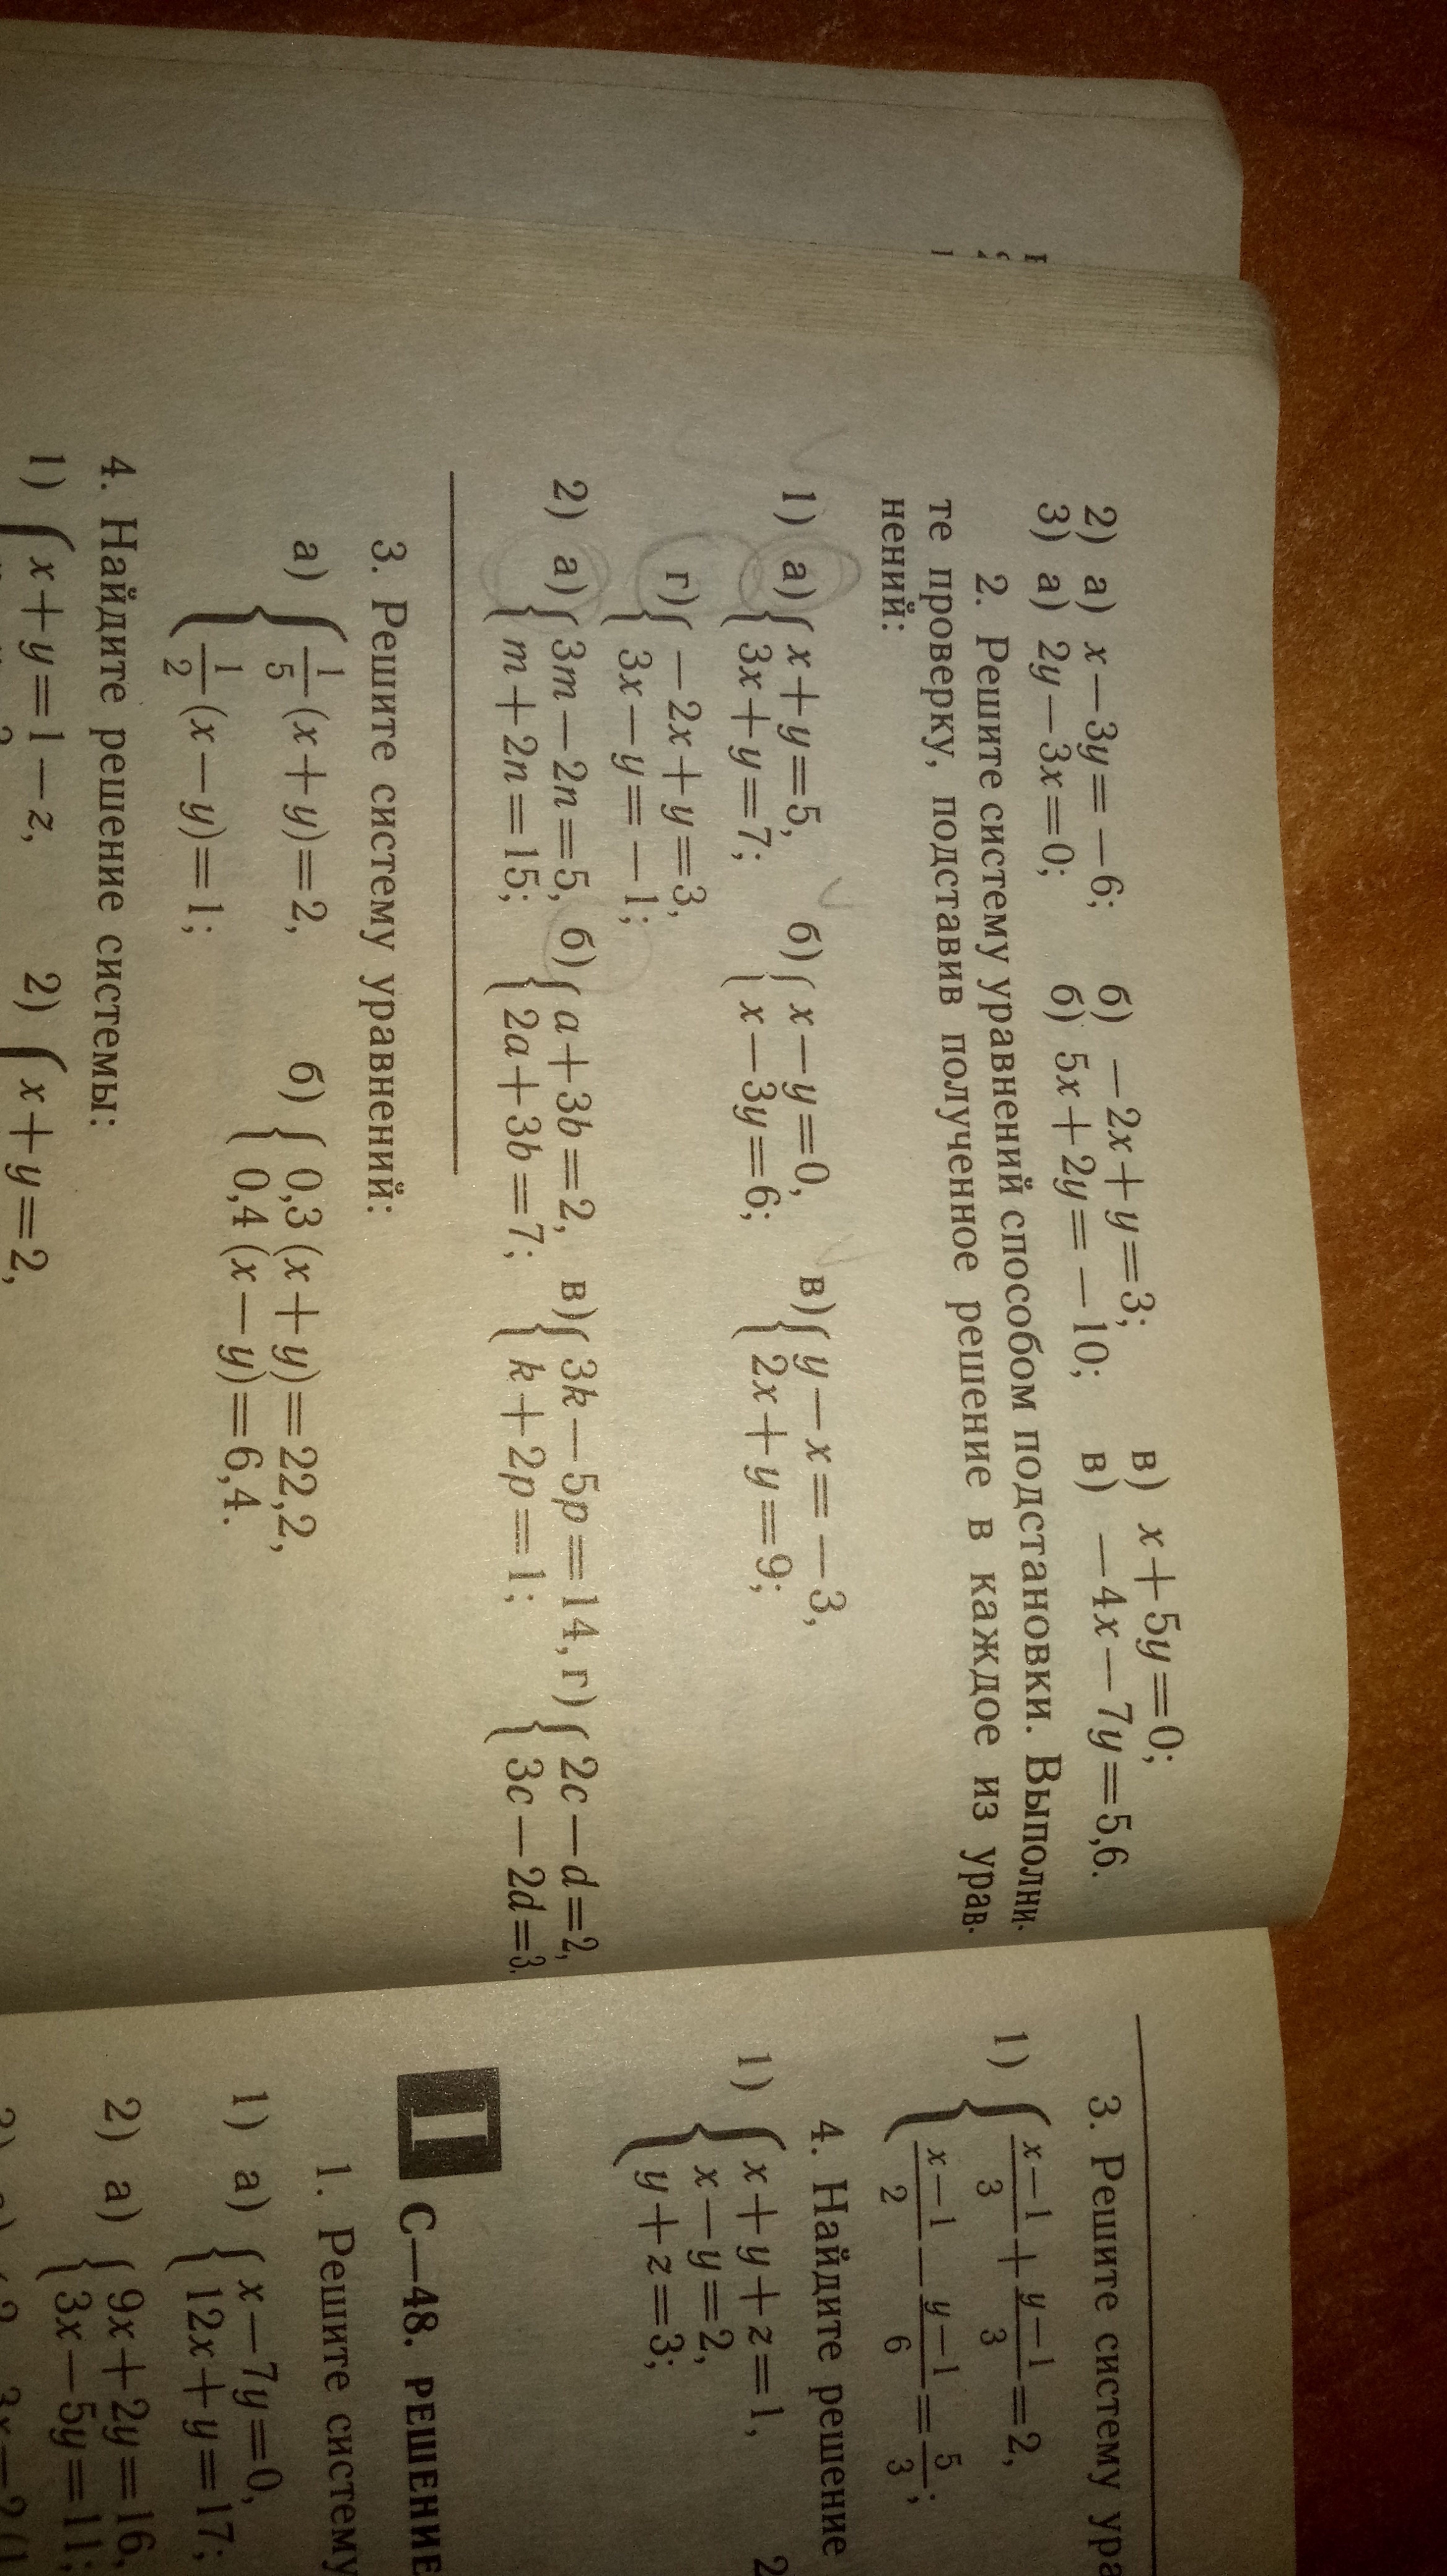 2) а) x−3y=−6; б) −2x+y=3; в) x+5y=0;
3) а) 2y−3x=0; б) 5x+2y=−10; в) −4x−7y=5,6.
2. Решите систему уравнений способом подстановки. Выполни-
те проверку, подставив полученное решение в каждое из урав-
нений:
1) а) { x+y=5, б) { x−y=0, в) { y−x=−3,
3x+y=7; x−3y=6; 2x+y=9;
г) { −2x+y=3,
3x−y=−1;
2) а) { 3m−2n=5, б) { a+3b=2, в) { 3k−5p=14, г) { 2c−d=2,
m+2n=15; 2a+3b=7; k+2p=1; 3c−2d=3.
3. Решите систему уравнений:
а) { 1/5 (x+y)=2, б) { 0,3 (x+y)=22,2,
1/2 (x−y)=1; 0,4 (x−y)=6,4.
4. Найдите решение системы:
1) { x+y=1−z, 2) { x+y=2,
3. Решите систему ура
1) { x−1/3 + y−1/3 = 2,
x−1/2 − y−1/6 = 5/3;
4. Найдите решение
1) { x+y+z=1, 2
x−y=2,
y+z=3;
I С—48. РЕШЕНИЕ
1. Решите систему
1) а) { x−7y=0,
12x+y=17;
2) а) { 9x+2y=16,
3x−5y=11;